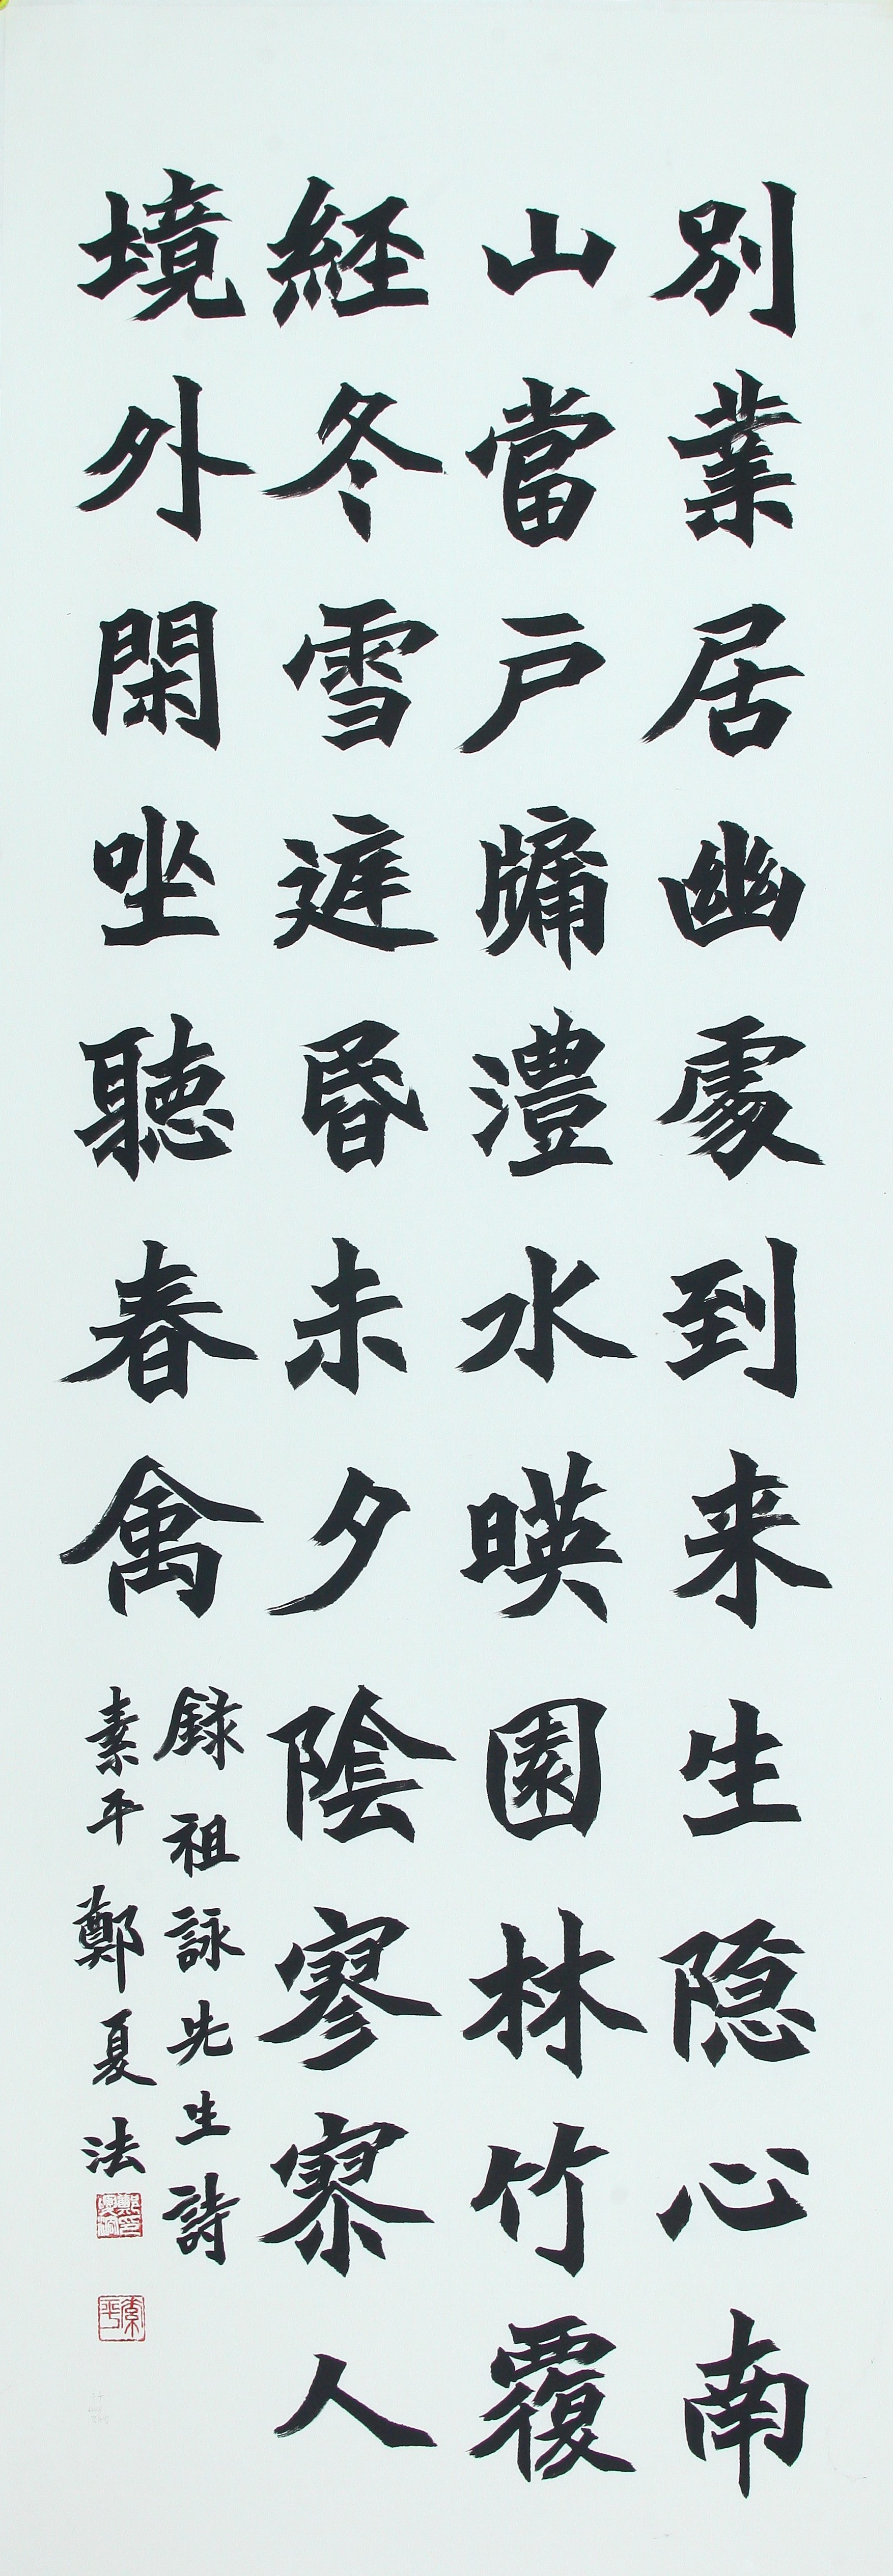 別業居幽處到来生隐心南
山當戸牗澧水暎園林竹覆
経冬雪遅昏未夕陰寥寮人
境外閑坐聽春禽
録祖詠先生詩
素平鄭夏法